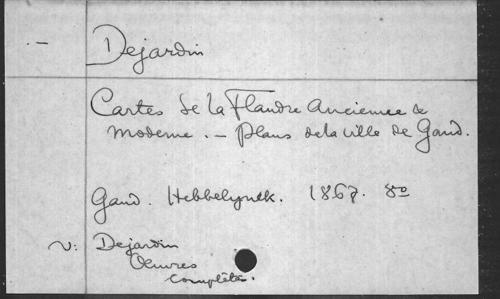 — Dejardin
Cartes de la Flandre Ancienne &
moderne. — plans de la ville de Gand.
Gand. Hebbelynck. 1867. 8o
V: Dejardin
Oeuvres
complètes.